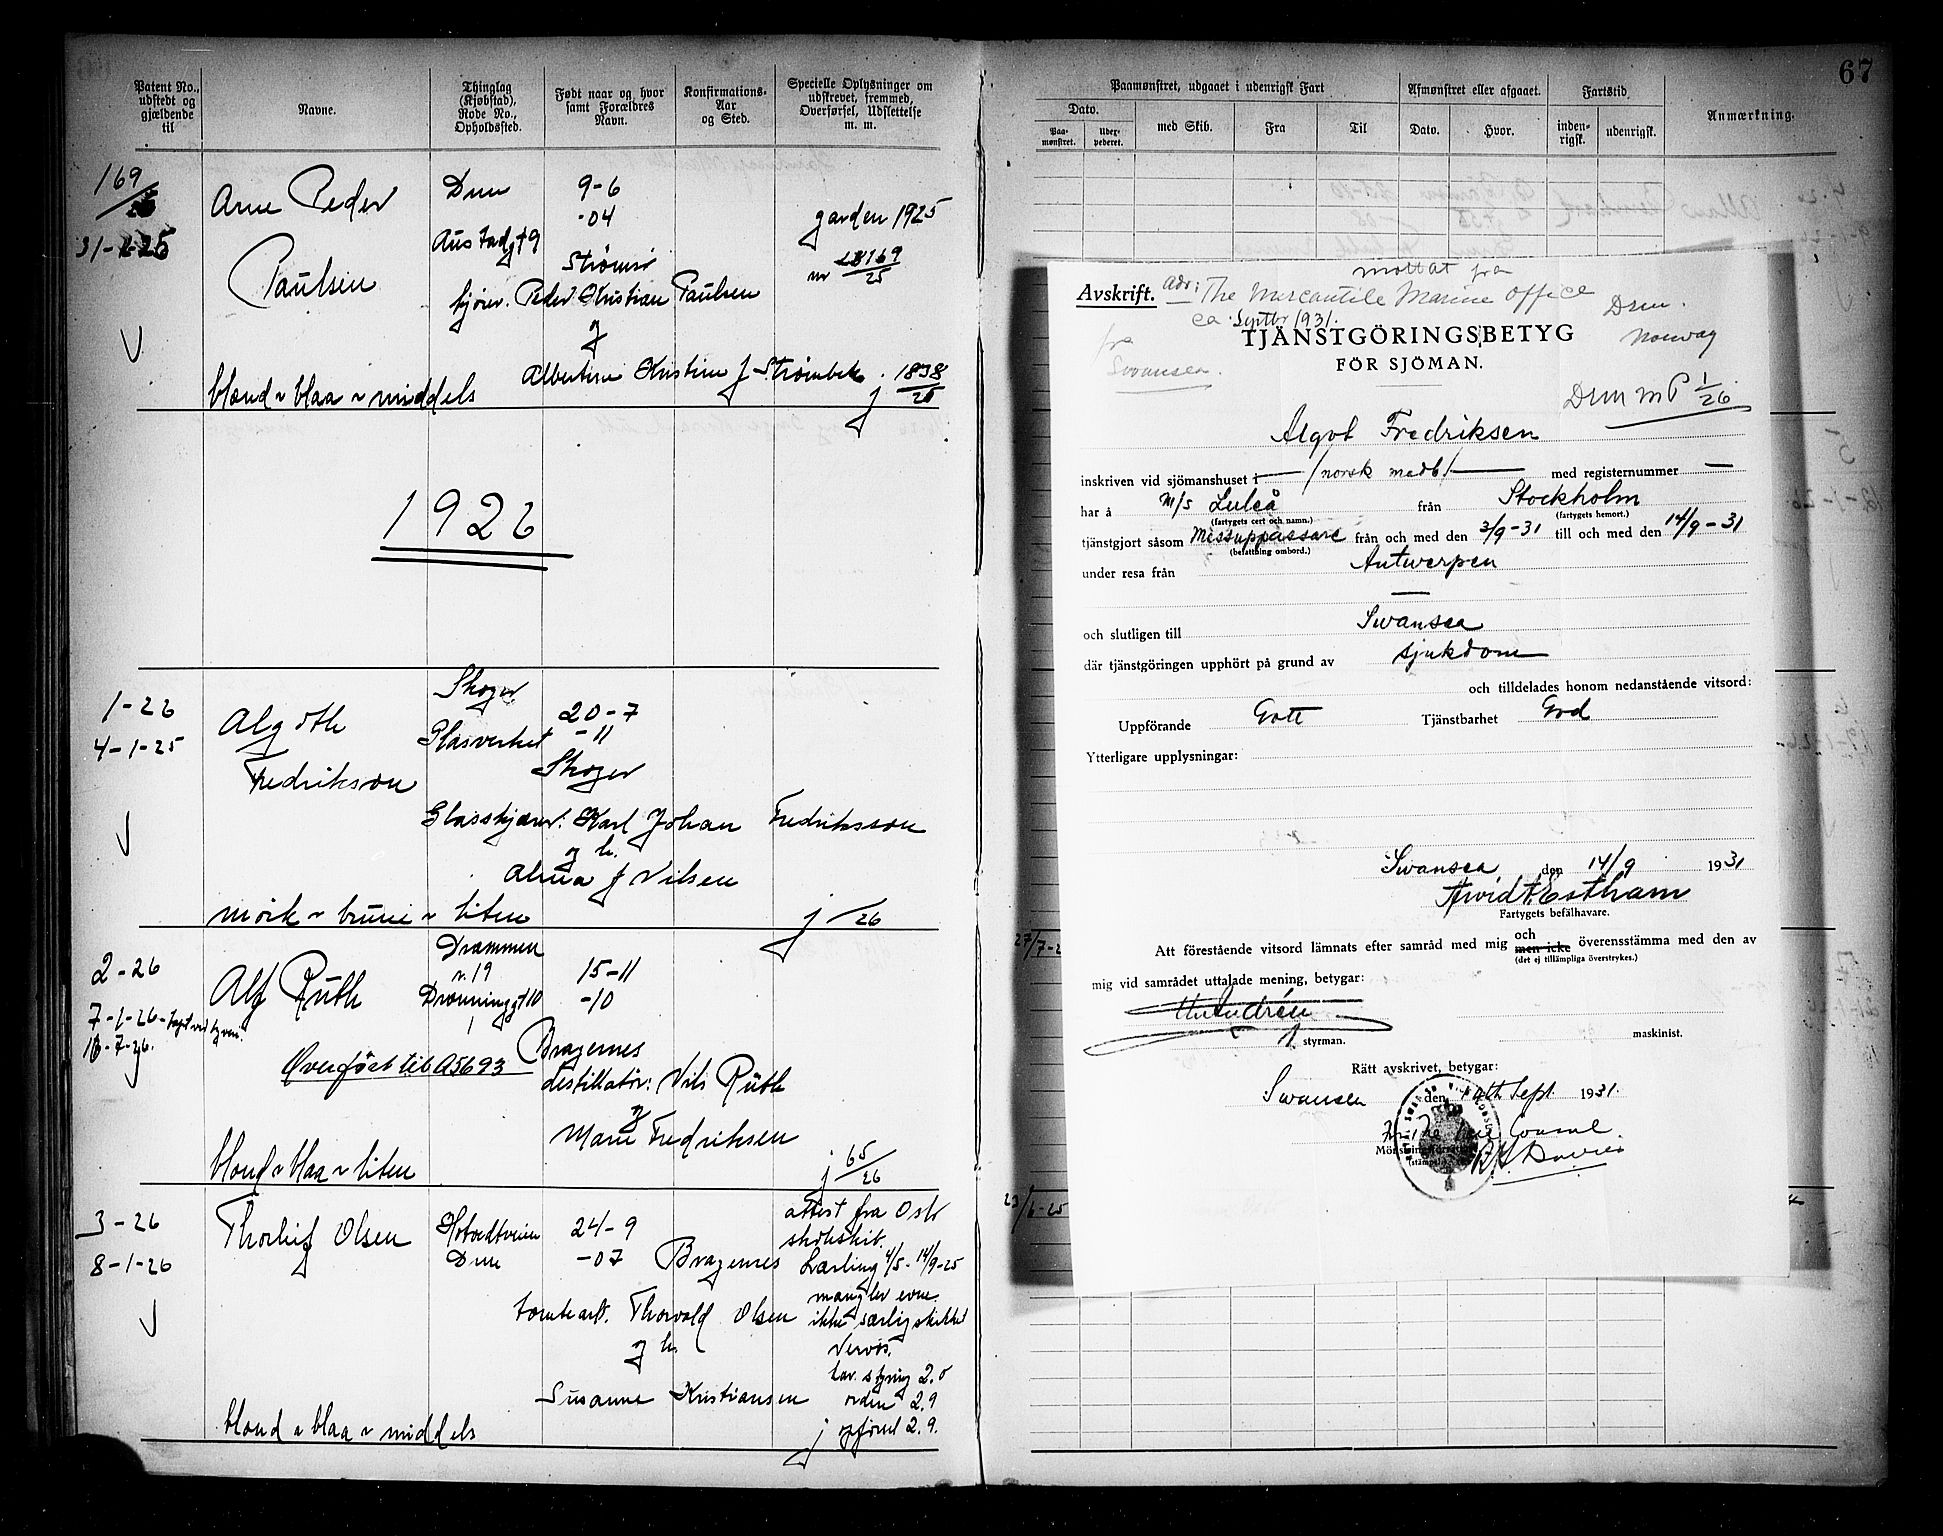 Patent No., udstedt og gjældende til
Navne.
Thinglag (Kjøbstad), Rode No., Opholdssted.
Født naar og hvor samt Forældres Navn.
Konfirmations- Aar og Sted.
Specielle Oplysninger om udskrevet, fremmed, Overførsel, Udslettelse m. m.
169
31-
Arne Peder
Paulsen
Drm
Austadgt 9
9-6
-04
Strømsø
garden 1925
nr 169/25
hjører. Peder Christian Paulsen
og
Albertine Kristine f Strømbek
j 1838
blond ~ blaa ~ middels
1926
1-26
4-1-25
Algoth
Fredriksson
Skoger
Glasverket
20-7
-11
Skoger
Karl Johan Fredriksson
og h.
Alma f Nilsen
mörk ~ brune ~ liten
j /26
2-26
7-1-26
16-7-26.
Alf Ruth
Drammen
r. 19
Dronninggt 10
15-11
-10
Overført til A5693
Bragernes
destillatør: Nils Ruth
og
Marie Fredriksen
blond ~ blaa ~ liten
j 65/26
3-26
8-1-26
Thorleif Olsen
Hotvedtveien
Drm
24-9
-07
Bragernes
attest fra Oslo
skoleskib.
Lærling 4/5 - 14/9-25
mangler evne.
ikke særlig skikket
Nervøs.
tomtearb. Thorvald Olsen
og h.
Susanne Kristiansen
orden 2.9
opførsel 2.9.
j
blond ~ blaa ~ middels
67
Paamønstret, udgaaet i udenrigsk Fart
Afmønstret eller afgaaet.
Fartstid.
Anmærkning.
Dato.
Paa- mønstret.
med Skib.
Fra
Til
Dato.
Hvor.
inden- rigsk.
udenrigsk.
27/7-2
23/6-25
mottat fra
Avskrift. Adr: The Mercantile Marine Office
ca. Septbr 1931.
Drm.
Norway
fra
Swansea.
TJÄNSTGÖRINGSBETYG
FÖR SJÖMAN.
Drm m P 1/26
Algot Fredriksen
inskriven vid sjömanshuset i — /norsk medb/ — med registernummer —
har å M/S Luleå från Stockholm
(fartygets cert och namn.) (fartygets hemort.)
tjänstgjort såsom Mässuppassare från och med den 3/9-31 till och med den 14/9-31
(befattning ombord.)
under resa från Antwerpen
—
och slutligen till Swansea
där tjänstgöringen upphört på grund av sjukdom
och tilldelades honom nedanstående vitsord:
Uppförande Gott Tjänstbarhet God
Ytterligare upplysningar:
Swansea, den 14/9 1931
Arvid A. Estham
Fartygets befälhavare.
Att förestående vitsord lämnats efter samråd med mig och men icke överensstämma med den av
(det ej tillämpliga överstrykes.)
mig vid samrådet uttalade mening, betygar:
1 styrman.
maskinist.
Rätt avskrivet, betygar:
Swansea den 14th Sept. 1931.
For the Vice Consul